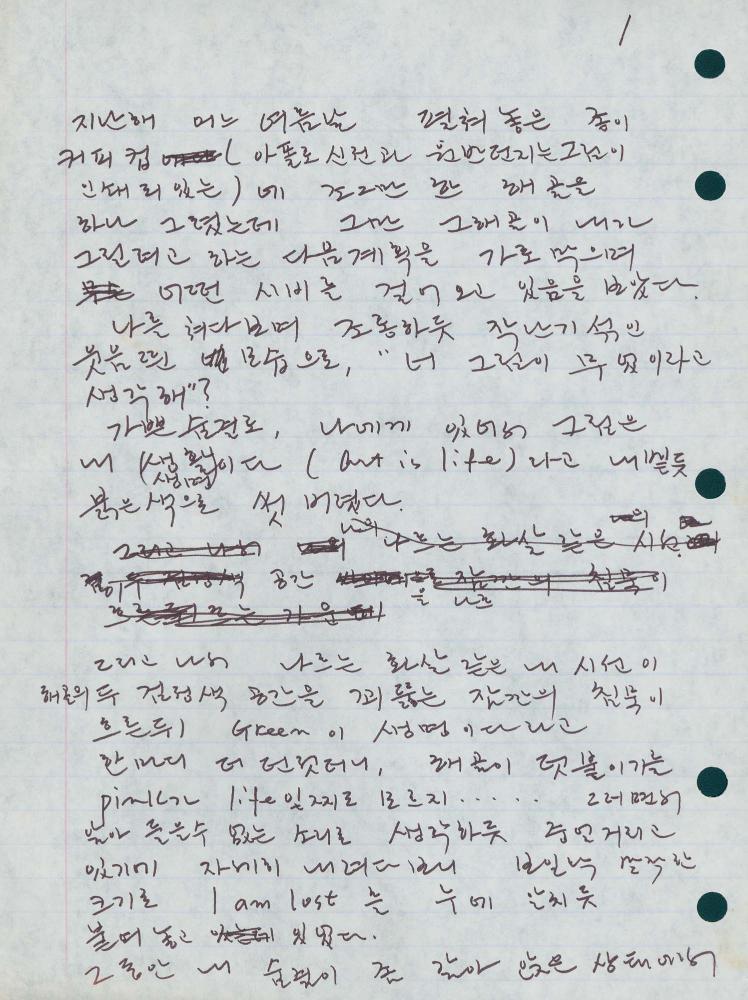 1
지난해 어느 여름날 펼쳐 놓은 종이
커피 컵 ( 아폴로 신전과 원반던지는 그림이
인쇄 되 있는 ) 에 조그만 한 해골을
하나 그렸는데 그만 그 해골이 내가
그릴려고 하는 다음 계획을 가로 막으며
어떤 시비를 걸어 오고 있음을 보았다.
나를 쳐다보며 조롱하듯 장난기 섞인
웃음 띈 모습으로, "너 그림이 무엇이라고
생각해"?
가쁜 숨결로, 나에게 있어서 그림은
내 (생활이다 ( Art is life ) 라고 내뱉듯
생명
붉은색으로 써 버렸다.
나의
나르는 화살 같은 시선
공간 잠깐의 침묵이
을
그리고 나서 나르는 화살 같은 내 시선이
해골의 두 검정색 공간을 꿰뚫는 잠깐의 침묵이
흐른 뒤 Green이 생명이다라고
한마디 더 던졌더니, 해골이 덧붙이기를
pink가 life인지도 모르지 . . . . . . 그러면서
알아 들을수 없는 소리로 생각하듯 중얼거리고
있기에 자세히 내려다 보니 보일락 말락한
크기로 I am lost 를 눈에 안치듯
붙여 놓고 있었다.
그동안 내 숨결이 좀 갈아 앉은 상태에서